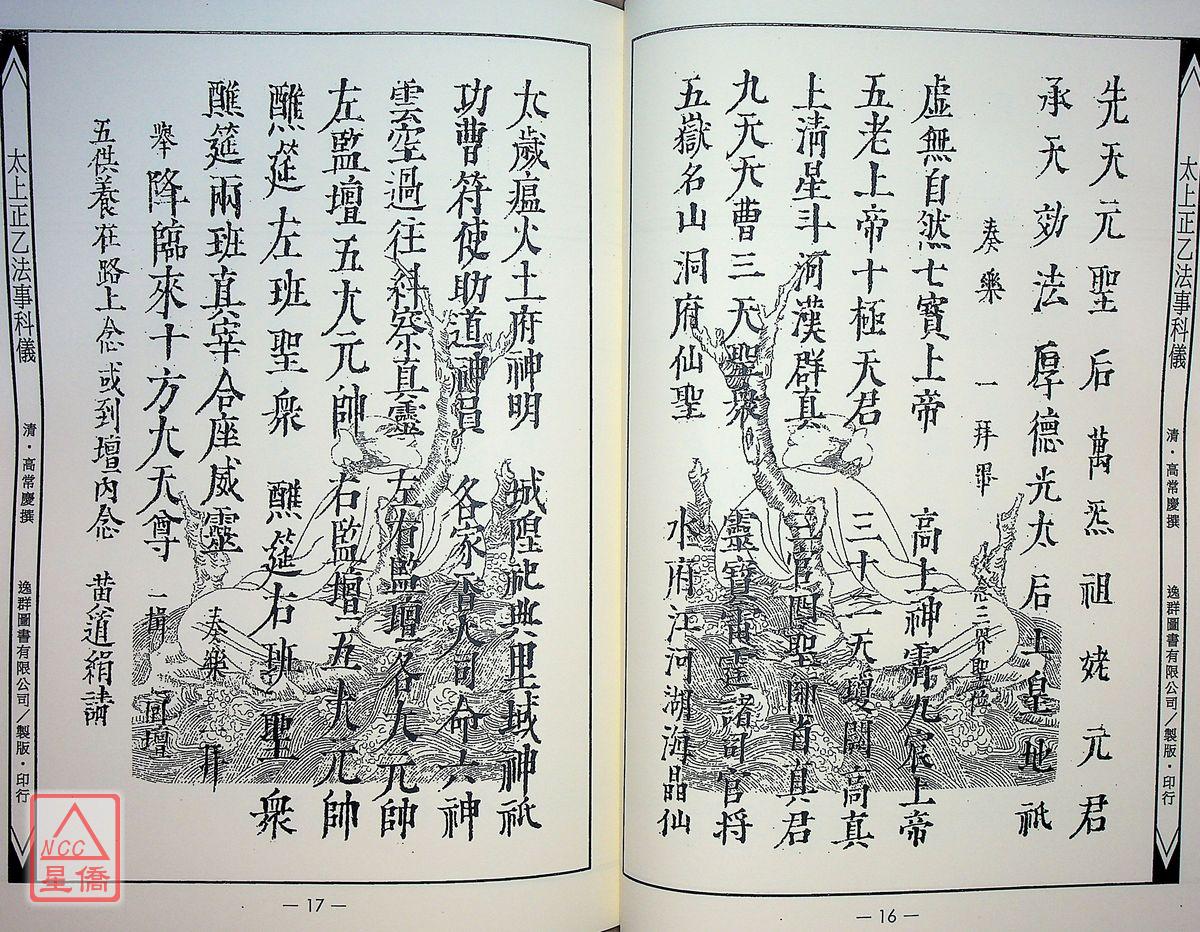 太上正乙法事科儀
清．高常慶撰
逸群圖書有限公司／製版．印行
先天元聖后 萬炁祖姥元君
承天効法 厚德光大后土皇地祇
奏樂 一拜畢 念三界聖位
虛無自然七寶上帝 高上神霄九宸上帝
五老上帝十極天君 三十二天瓊闕高真
上清星斗河漢群真 聖 真君
九天天曹三天聖衆 靈寶雷霆諸司官将
五嶽名山洞府仙聖 水府江河湖海晶仙
— 16 —
太歲瘟火土府神明 城隍祀典里域神祇
功曹符使助道神員 各家香火司命六神
雲空過往糾察真靈 左右監壇各大元帥
左監壇五大元帥 右監壇五大元帥
醮筵左班聖衆 醮筵右班聖衆
醮筵兩班真宰合座威靈 奏樂 一拜
舉 降臨來十方大天尊 一揖 回壇
五供養在路上念或到壇內念 黃道絹請
太上正乙法事科儀
清．高常慶撰
逸群圖書有限公司／製版．印行
— 17 —
NCC
星僑